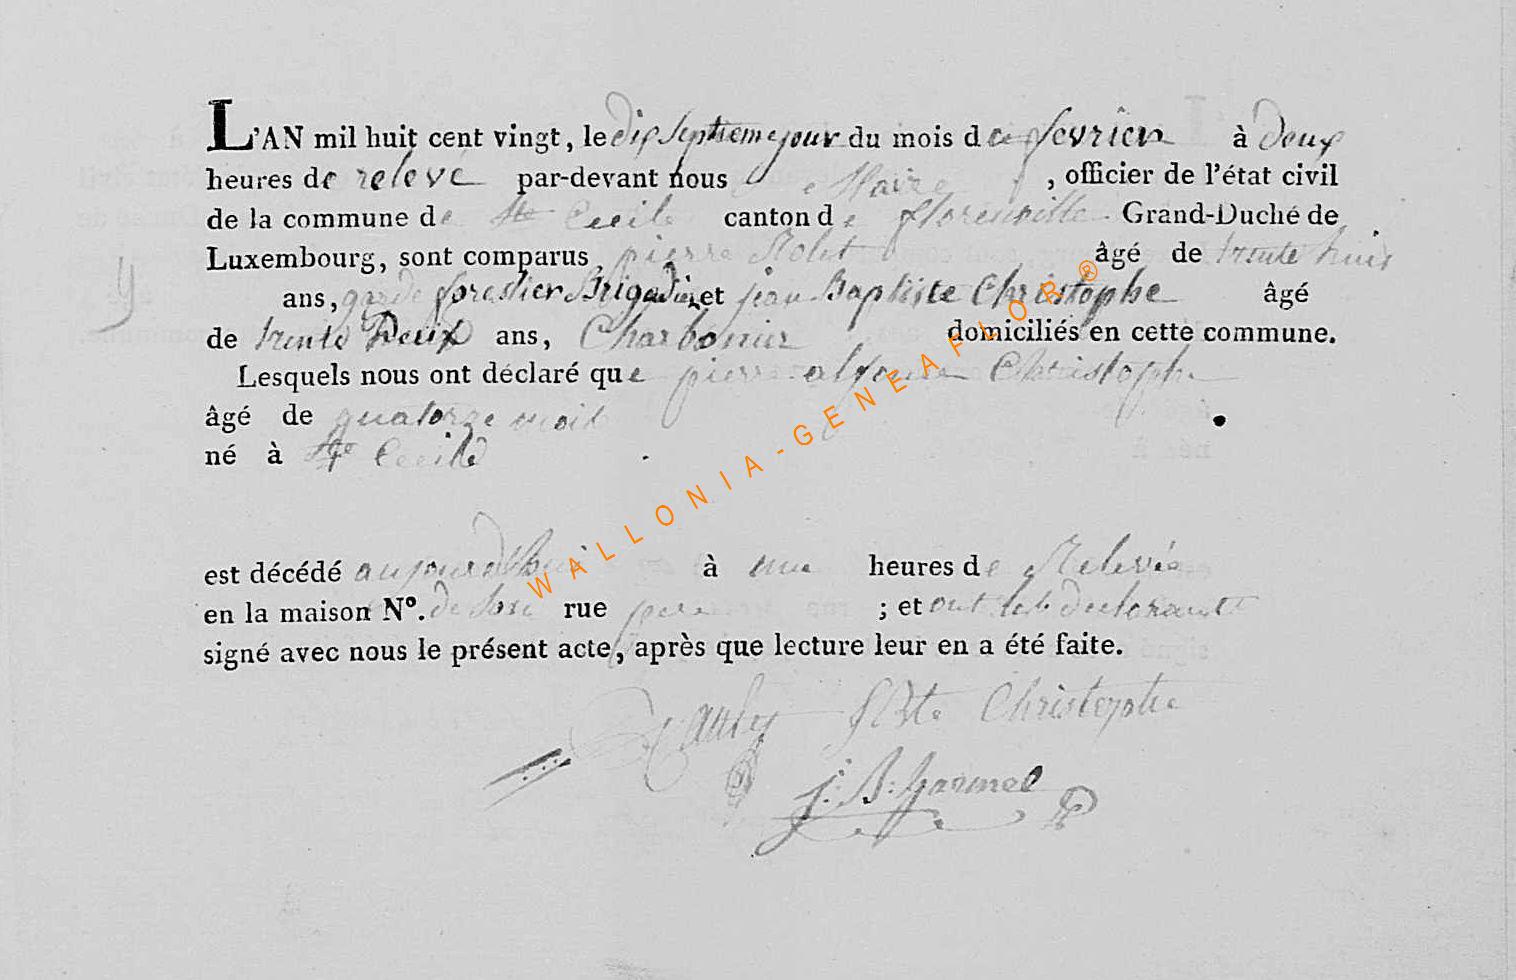 L'AN mil huit cent vingt, le dix Septieme jour du mois de fevrier à deux
heures de relevé par-devant nous Maire, officier de l'état civil
de la commune de Ste Cecile canton de florenville Grand-Duché de
Luxembourg, sont comparus pierre âgé de trente huit
ans, garde forestier Brigadier et jean Baptiste Christophe âgé
de trente Deux ans, Charbonier domiciliés en cette commune.
Lesquels nous ont déclaré que pierre Christophe
âgé de quatorze mois
né à Ste Cecile
est décédé aujourd'hui à une heures de Relevée
en la maison N°. rue ; et ont les declarants
signé avec nous le présent acte, après que lecture leur en a été faite.
Christophe
j: B:
WALLONIA-GENEAFLOR®